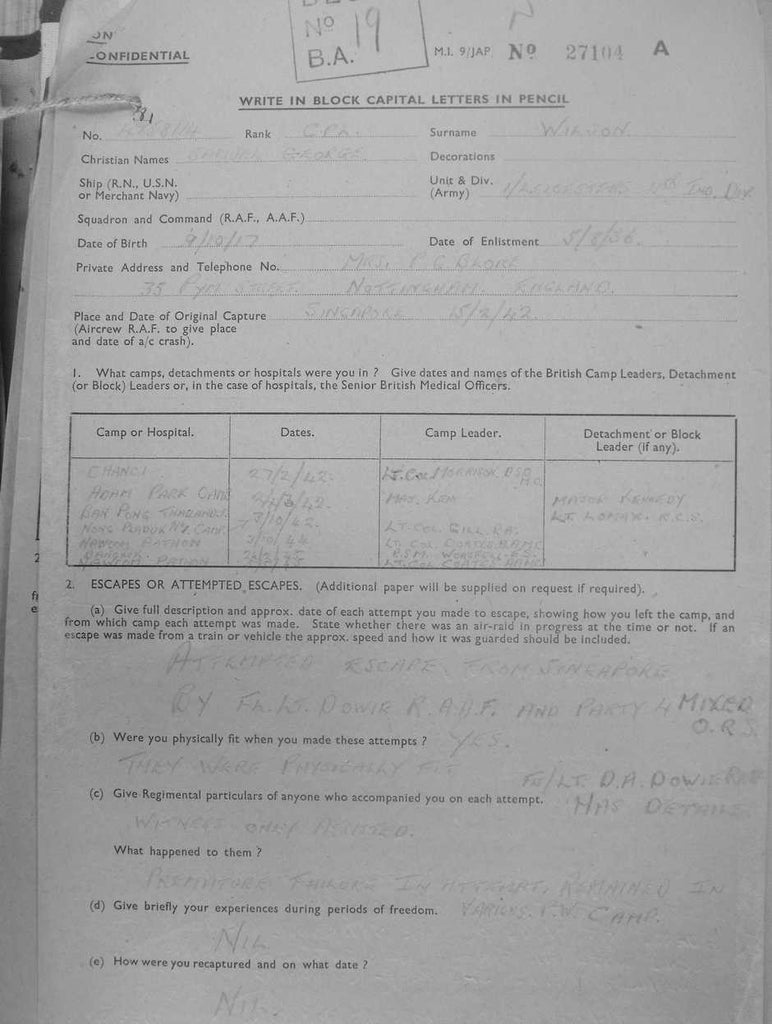 No 19
B.A.
CONFIDENTIAL
M.I. 9/JAP. No 27104 A
WRITE IN BLOCK CAPITAL LETTERS IN PENCIL
No. Rank CPL. Surname WILSON
Christian Names GEORGE Decorations
Ship (R.N., U.S.N. or Merchant Navy) Unit & Div. (Army) 1/LEICESTERS IND. DIV.
Squadron and Command (R.A.F., A.A.F.)
Date of Birth 9/10/17 Date of Enlistment 5/8/36
Private Address and Telephone No. MRS.
35 PYM STREET. NOTTINGHAM. ENGLAND.
Place and Date of Original Capture SINGAPORE 15/2/42.
(Aircrew R.A.F. to give place
and date of a/c crash).
1. What camps, detachments or hospitals were you in ? Give dates and names of the British Camp Leaders, Detachment
(or Block) Leaders or, in the case of hospitals, the Senior British Medical Officers.
Camp or Hospital. Dates. Camp Leader. Detachment or Block
Leader (if any).
CHANGI 27/2/42. LT. COL MORRISON DSO
M.C.
ADAM PARK CAMP /3/42. MAJ. MAJOR KENNEDY
BAN PONG /10/42. LT. LOMAX. R.C.S.
NONG PLADUK CAMP LT. COL. GILL RA.
LT. COL. COATES
R.S.M.
2. ESCAPES OR ATTEMPTED ESCAPES. (Additional paper will be supplied on request if required).
(a) Give full description and approx. date of each attempt you made to escape, showing how you left the camp, and
from which camp each attempt was made. State whether there was an air-raid in progress at the time or not. If an
escape was made from a train or vehicle the approx. speed and how it was guarded should be included.
ATTEMPTED ESCAPE. FROM SINGAPORE
BY FL. LT. DOWIE R.A.A.F. AND PARTY 4 MIXED
O.R.S
(b) Were you physically fit when you made these attempts ? YES.
THEY WERE PHYSICALLY FIT
FL/LT. D.A. DOWIE
(c) Give Regimental particulars of anyone who accompanied you on each attempt. HAS DETAILS
WITNESS ONLY ASSISTED.
What happened to them ?
PREMATURE FAILURE IN ATTEMPT, REMAINED IN
(d) Give briefly your experiences during periods of freedom. VARIOUS. P.W. CAMP.
NIL
(e) How were you recaptured and on what date ?
NIL.